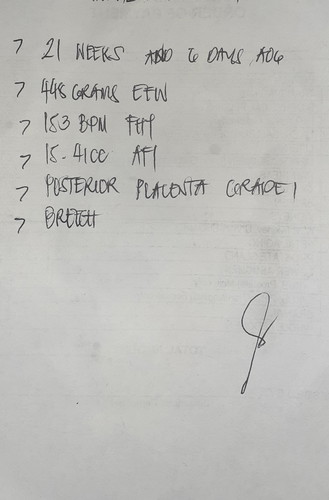 > 21 WEEKS AND 6 DAYS AOG
> 448 GRAMS EFW
> 153 BPM FHT
> 15.41CC AFI
> POSTERIOR PLACENTA GRADE 1
> BREECH